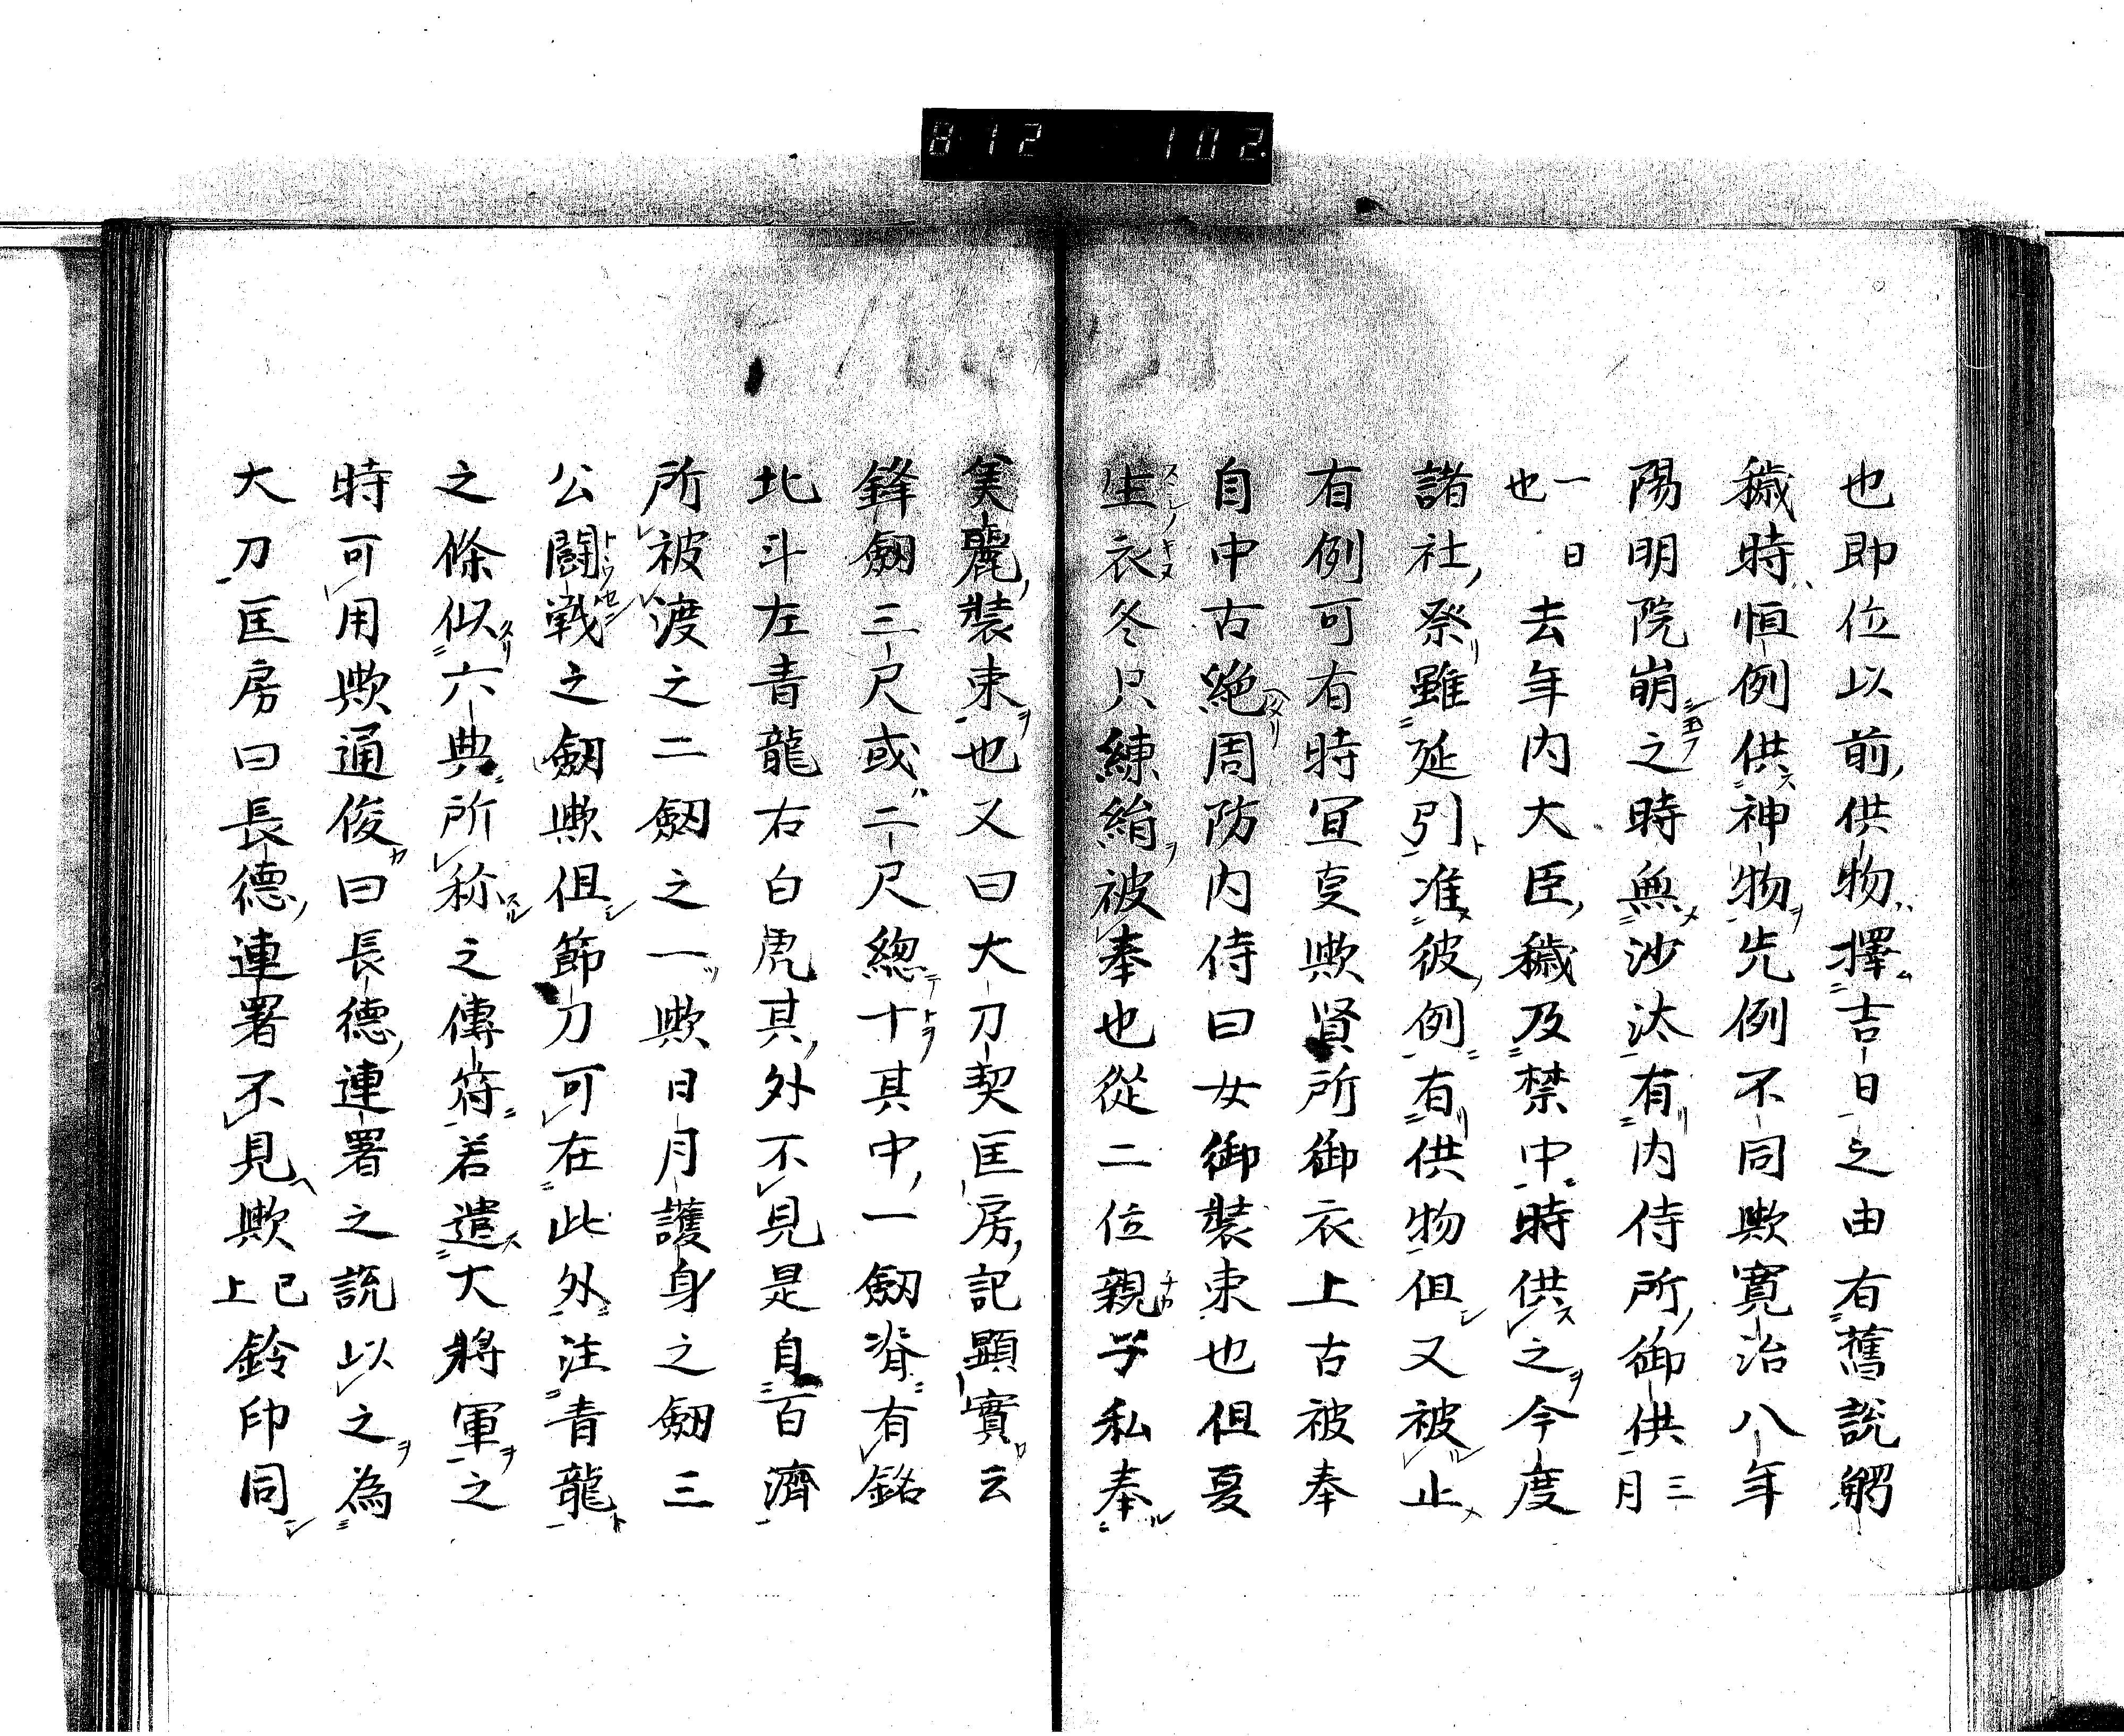 812 102
也即位以前供物擇吉日之由有舊說觸
穢時恒例供神物先例不同歟寛治八年
陽明院崩之時無沙汰有内侍所御供三月
一日也去年内大臣穢及禁中時供之今度
諸社祭雖延引准彼例有供物但又被止
有例可有時宜㕝歟賢所御衣上古被奉
自中古絶周防内侍曰女御装束也但夏
生衣冬只練絹被奉也從二位親子私奉
美麗装束也又曰大刀契匡房記顕實云
鋒劔三尺或二尺總十其中一劔脊有銘
北斗左青龍右白虎其外不見是自百濟
所被渡之二劔之一歟日月護身之劔三
公闘戦之劔歟但節刀可在此外注青龍
之條似六典所称之傳符若遣大将軍之
時可用歟通俊曰長德連署之説以之為
大刀匡房曰長德連署不見歟已上鈴印同